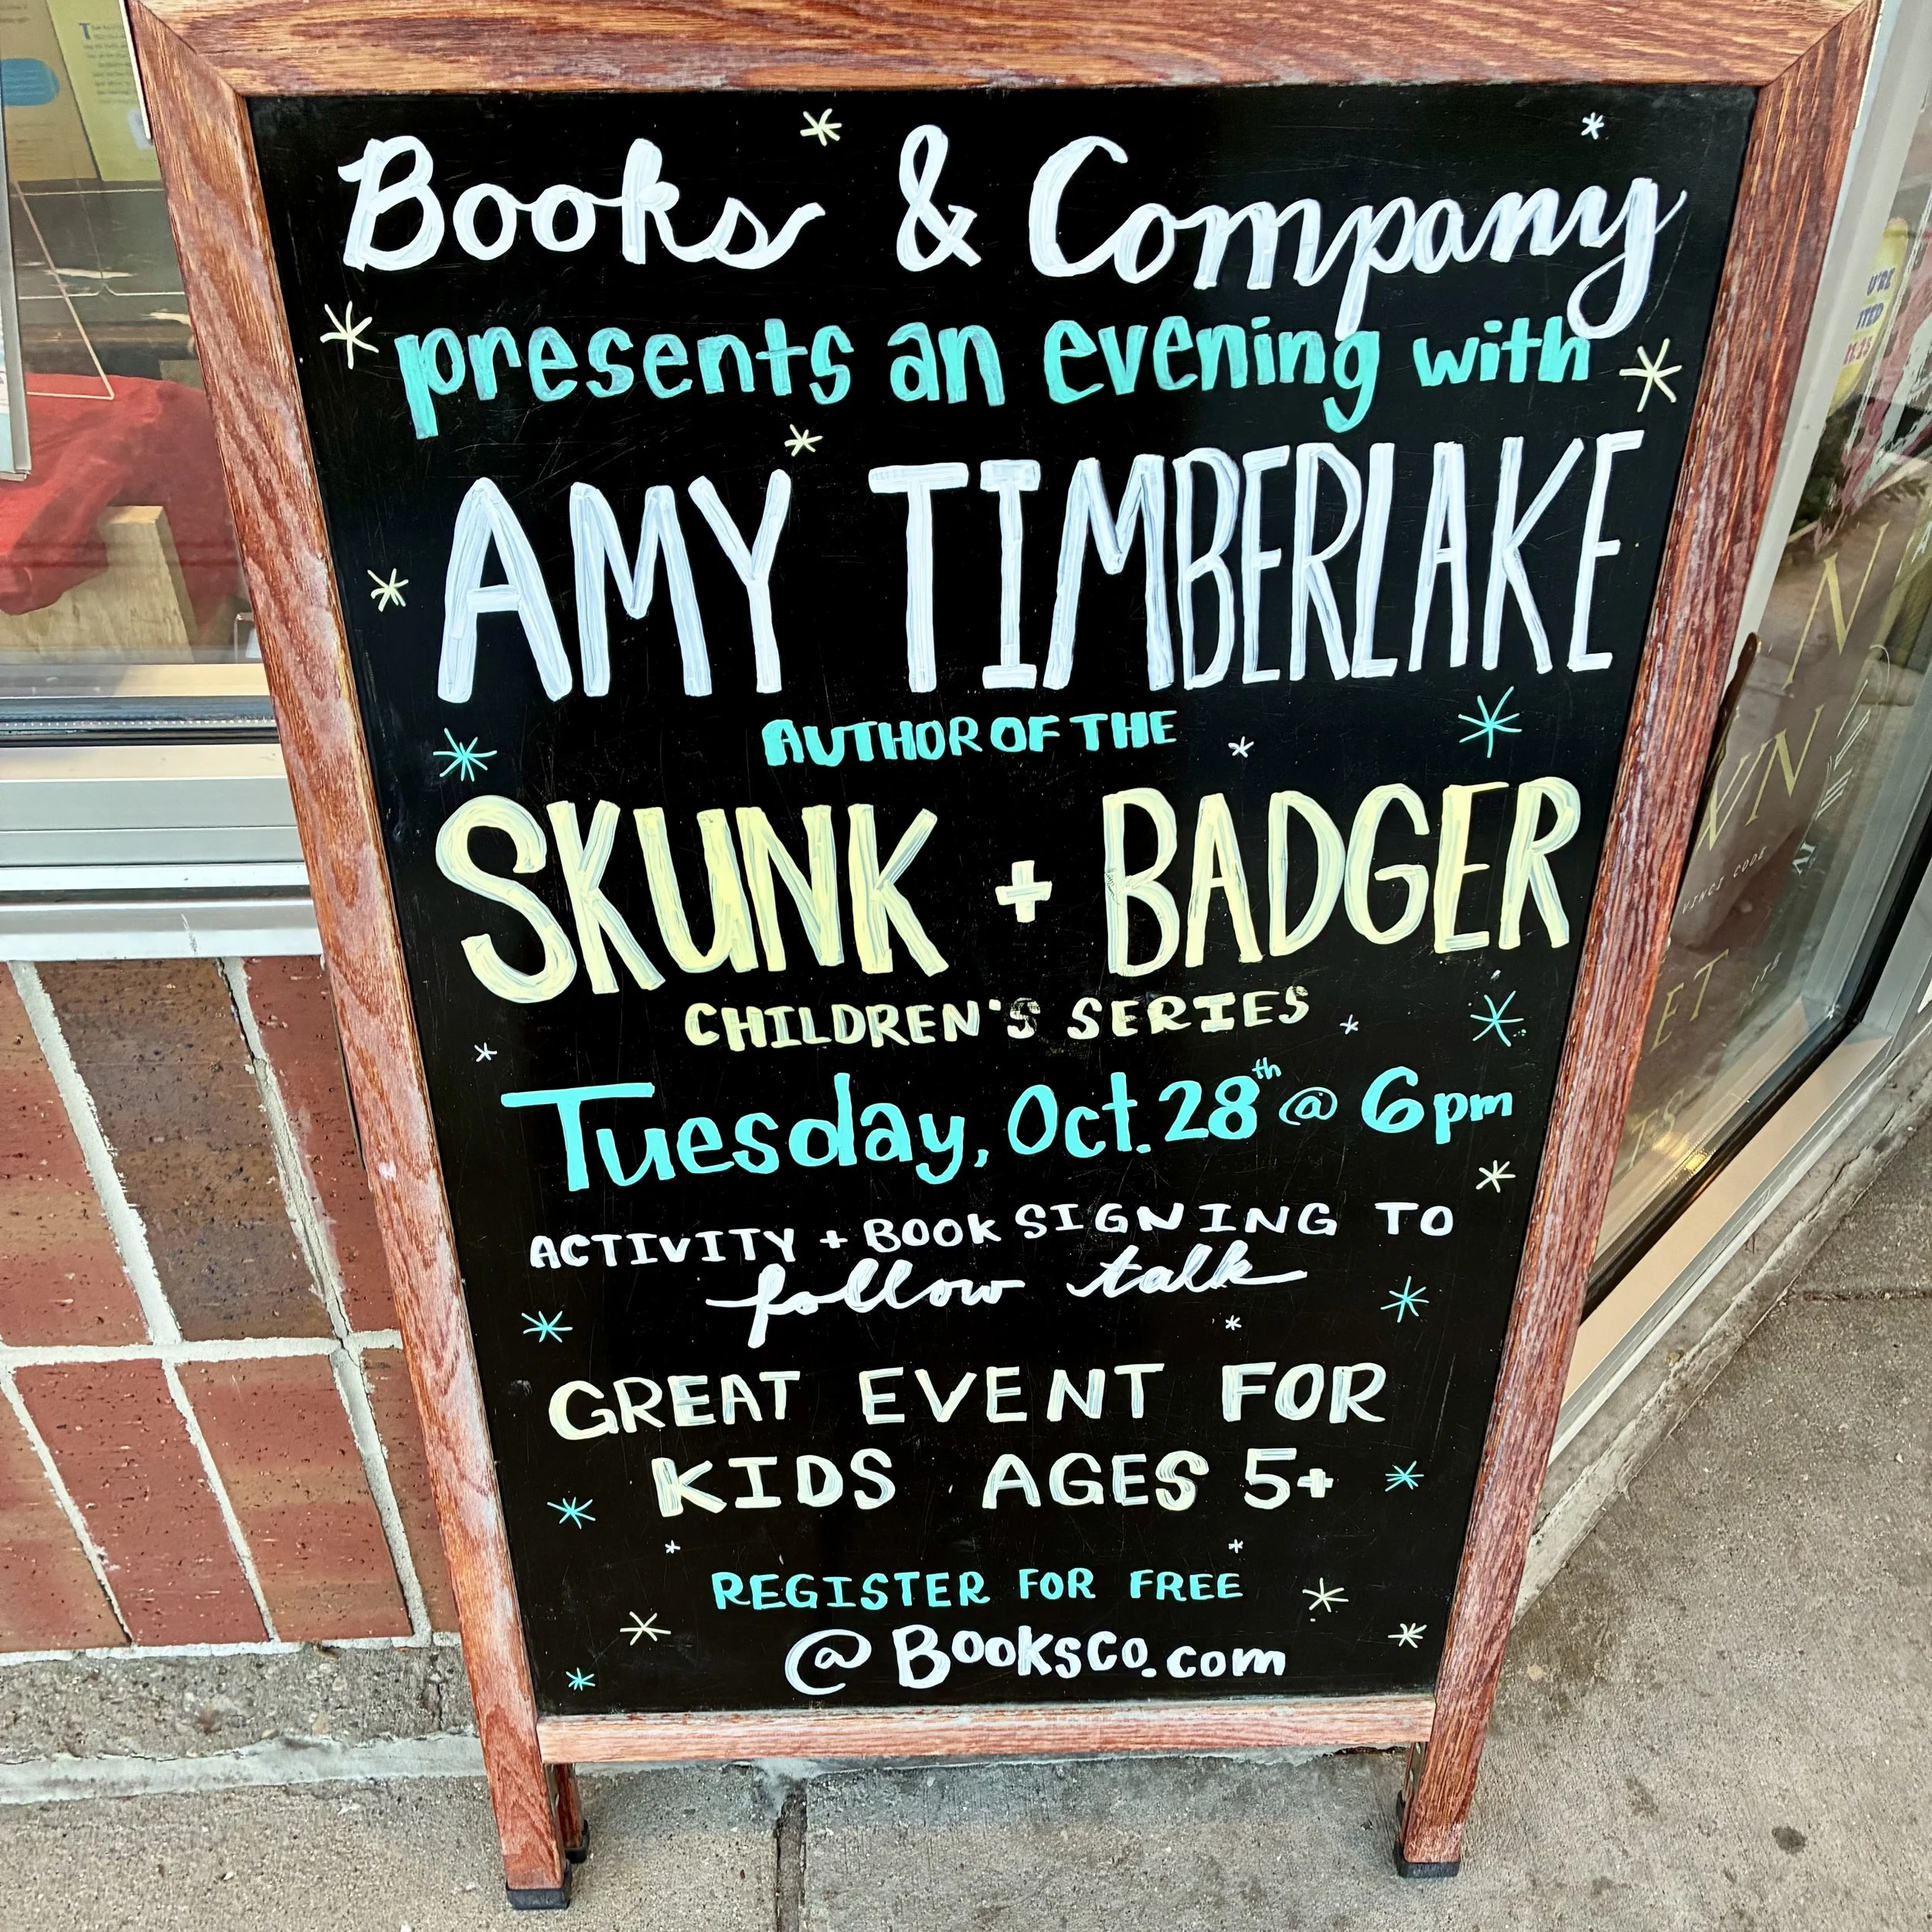 Books & Company
presents an evening with
AMY TIMBERLAKE
AUTHOR OF THE
SKUNK + BADGER
CHILDREN'S SERIES
Tuesday, Oct. 28th @ 6pm
ACTIVITY + BOOK SIGNING TO
follow talk
GREAT EVENT FOR
KIDS AGES 5+
REGISTER FOR FREE
@ BOOKSCO.com